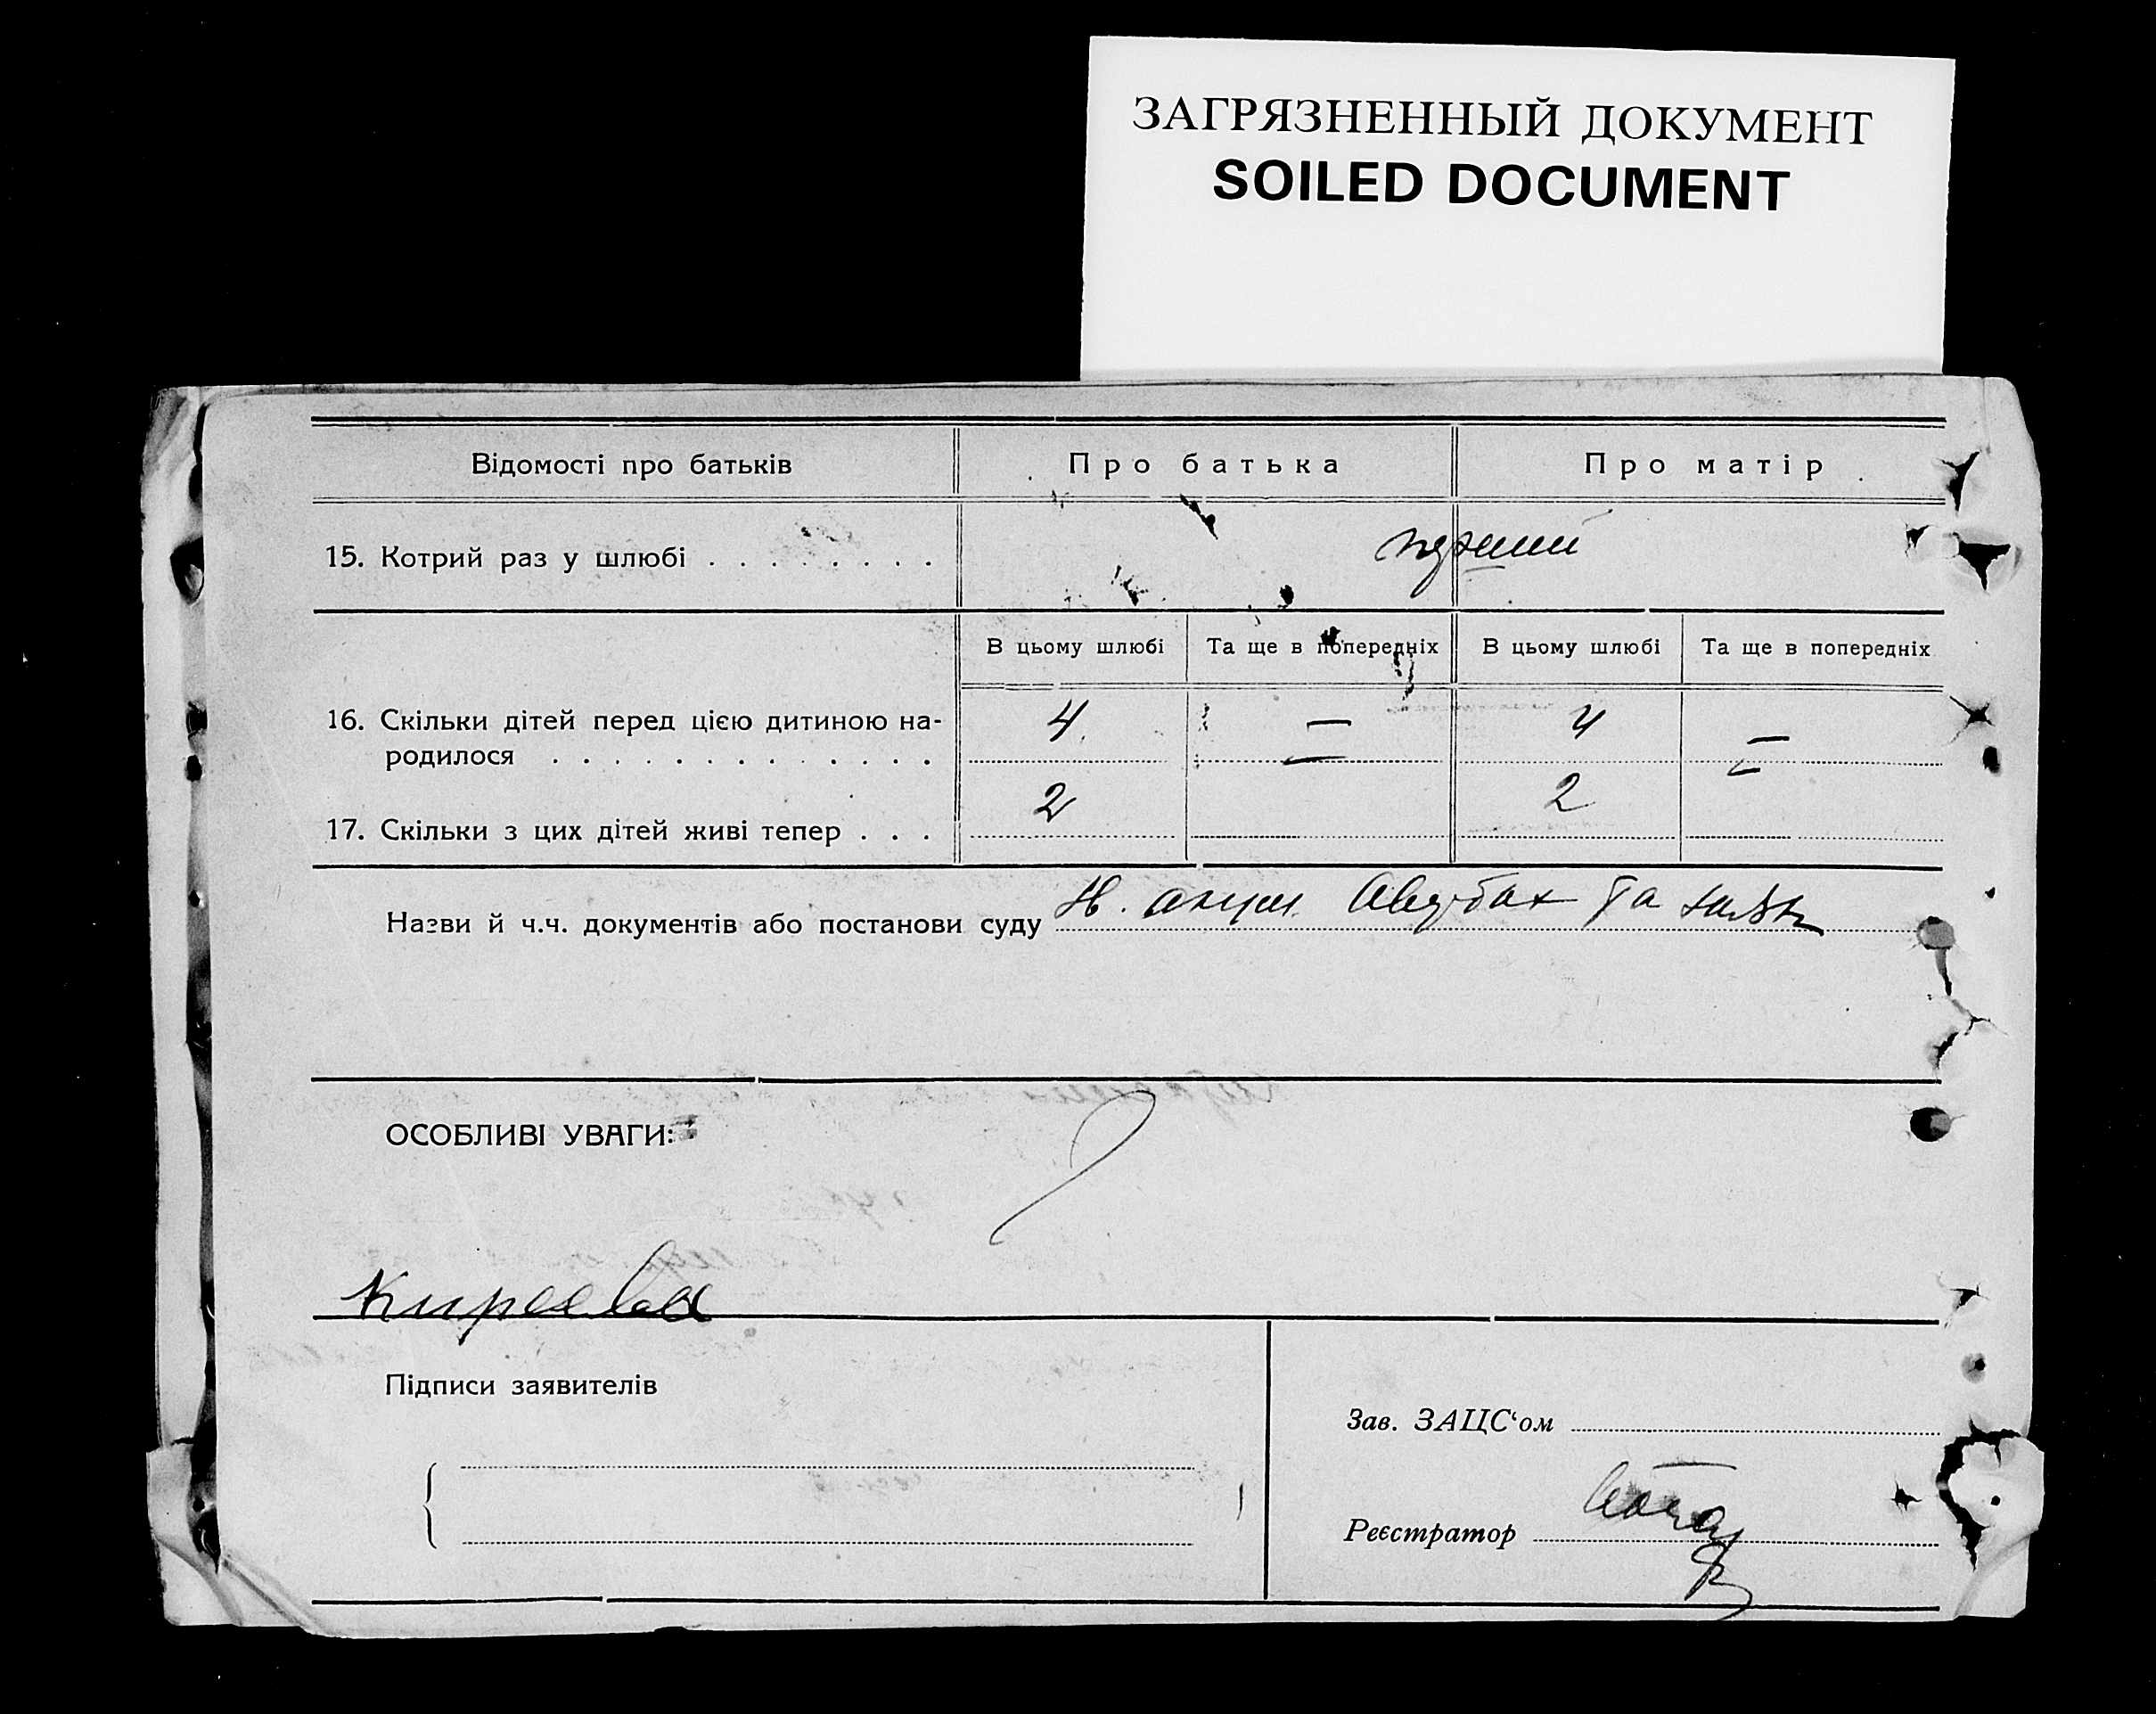 ЗАГРЯЗНЕННЫЙ ДОКУМЕНТ
SOILED DOCUMENT
Відомості про батьків Про батька Про матір
15. Котрий раз у шлюбі . . . . . . . . перший
В цьому шлюбі Та ще в попередніх В цьому шлюбі Та ще в попередніх
16. Скільки дітей перед цією дитиною на- 4 — 4 —
родилося . . . . . . . . . . . . . — —
17. Скільки з цих дітей живі тепер . . . 2 2
Назви й ч.ч. документів або постанови суду та
ОСОБЛИВІ УВАГИ:
Киреева
Підписи заявителів
Зав. ЗАЦС‘ом
Реєстратор